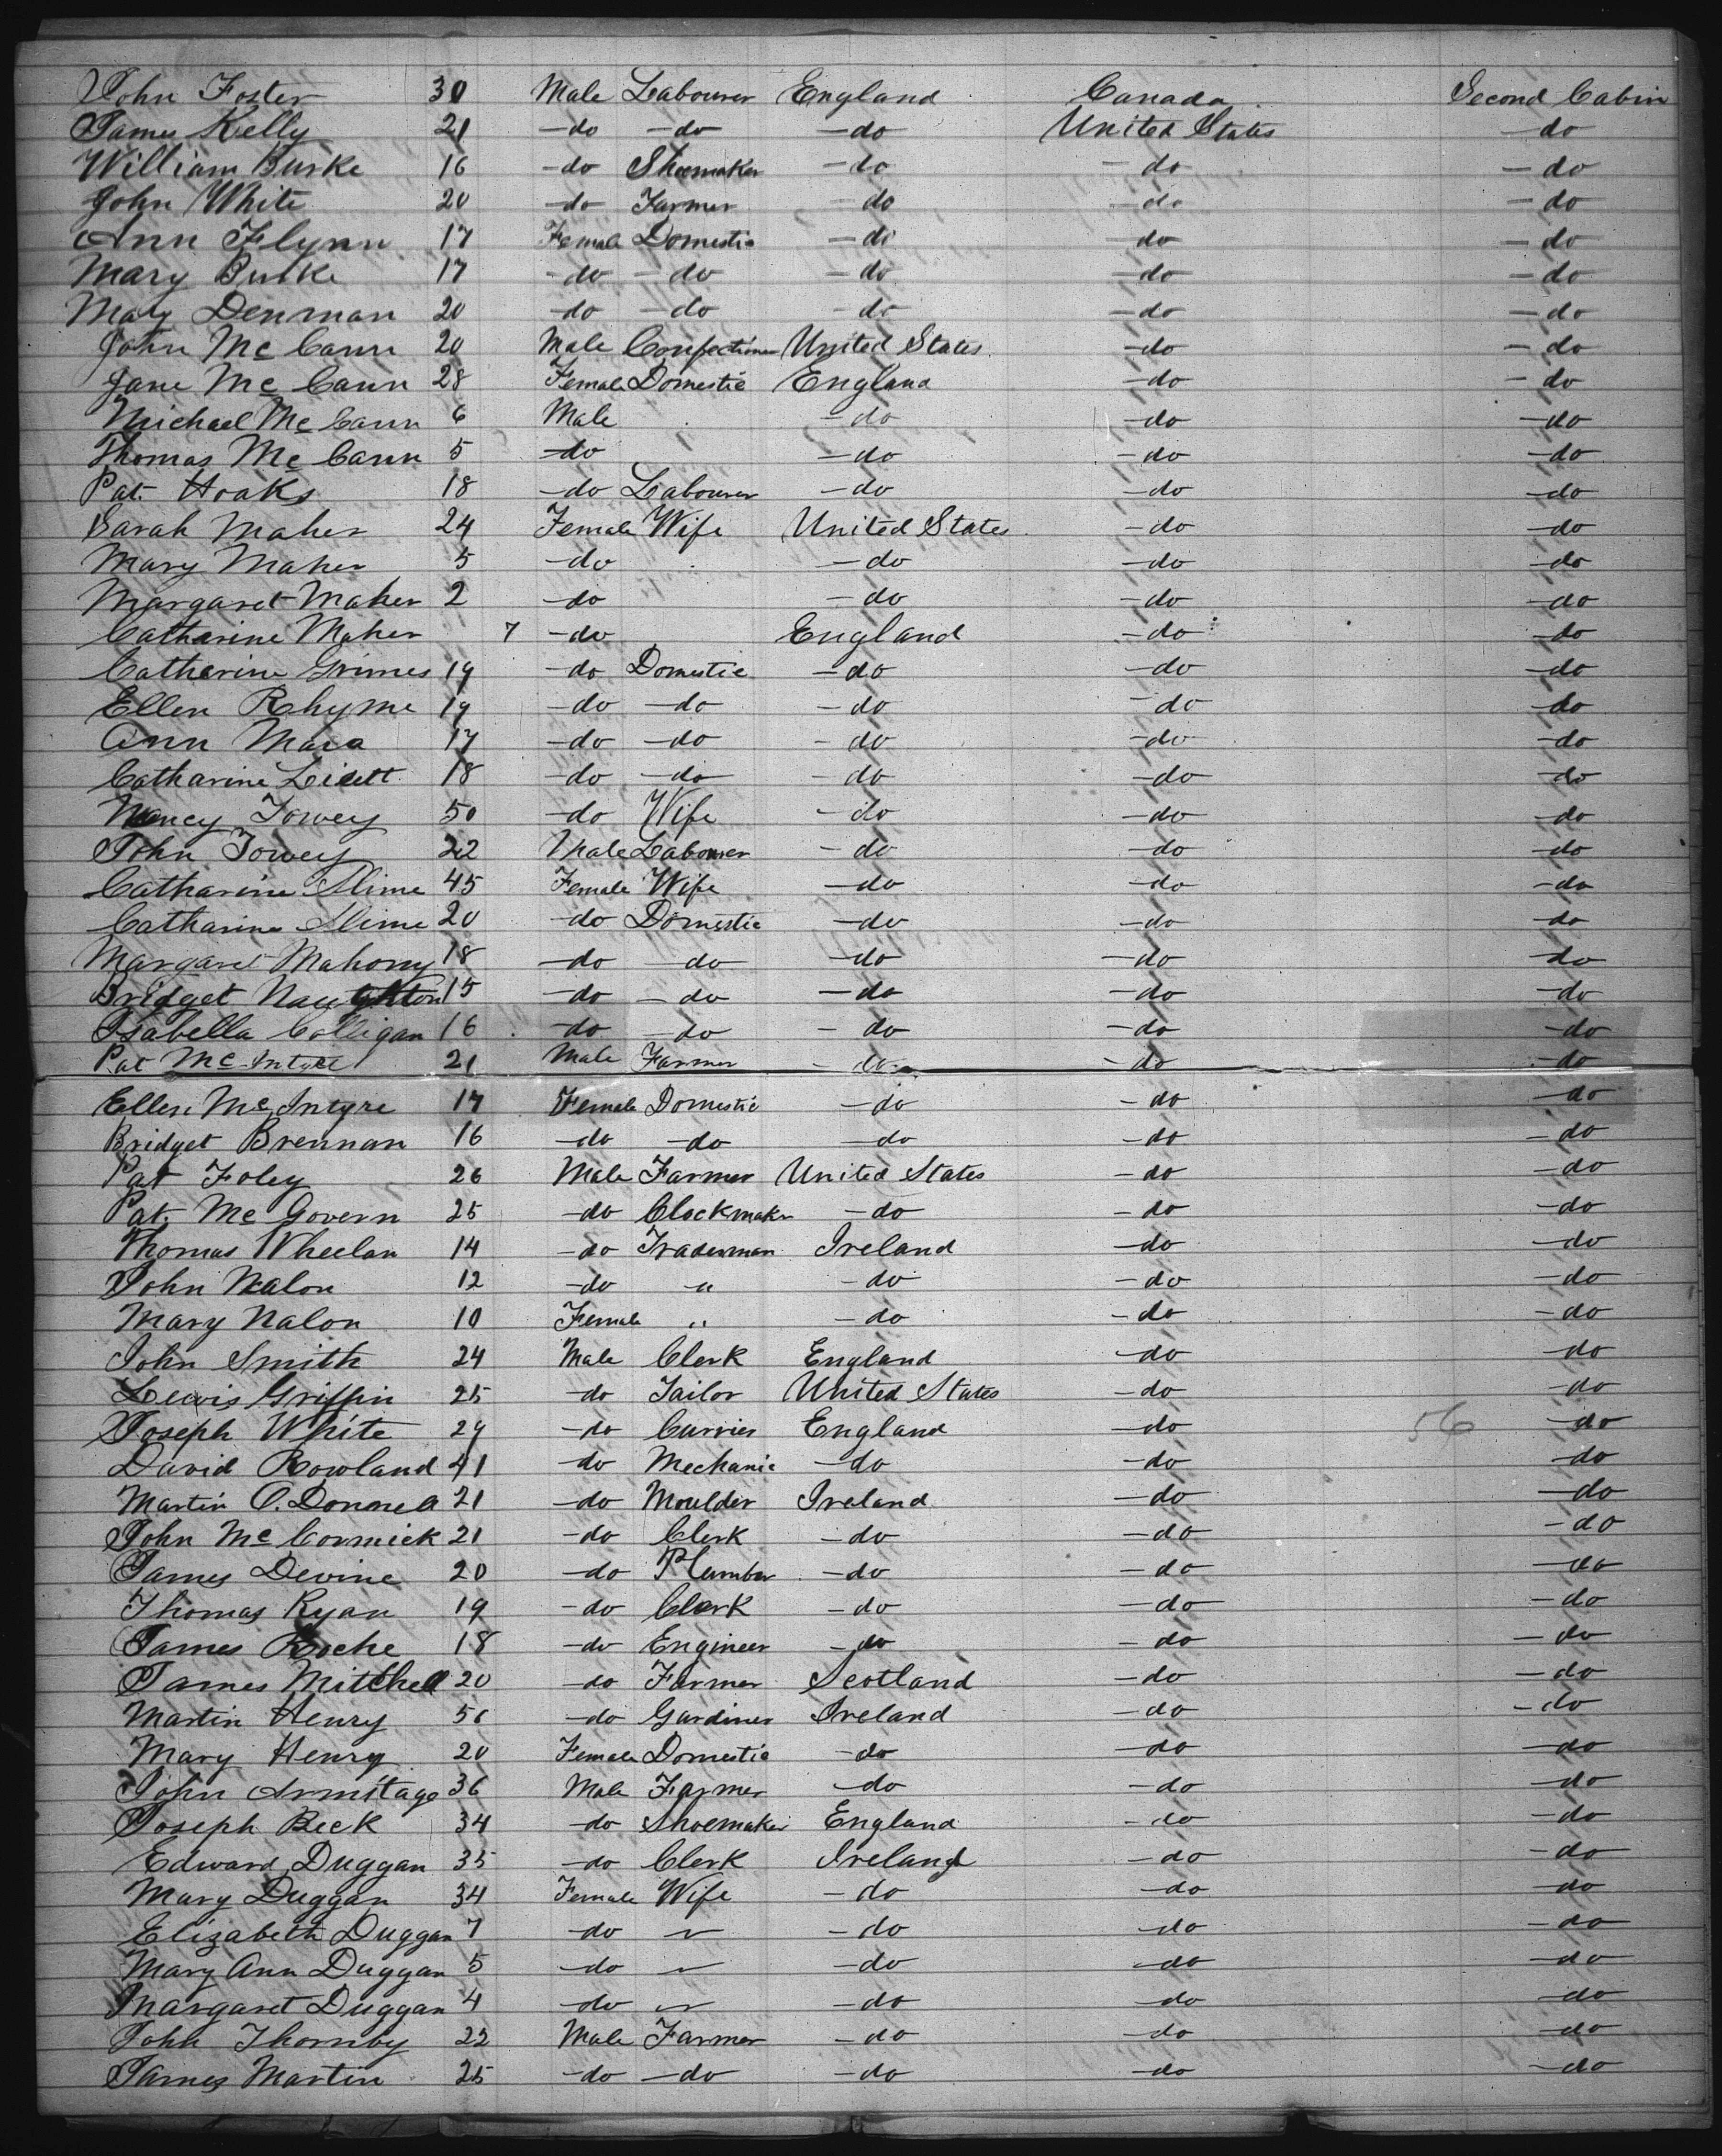 John Foster 30 Male Labourer England Canada Second Cabin
James Kelly 21 -do -do -do United States -do
William Burke 16 -do Shoemaker -do -do -do
John White 20 -do Farmer -do -do -do
Ann Flynn 17 Female Domestic -do -do -do
Mary Burke 17 -do -do -do -do -do
Mary Denman 20 -do -do -do -do -do
John McCann 20 Male Confectioner United States -do -do
Jane McCann 28 Female Domestic England -do -do
Michael McCann 6 Male -do -do -do
Thomas McCann 5 -do -do -do -do
Pat. Hoaks 18 -do Labourer -do -do -do
Sarah Maher 24 Female Wife United States -do -do
Mary Maher 5 -do -do -do -do
Margaret Maher 2 -do -do -do -do
Catharine Maher 7 -do England -do -do
Catharine Grimes 19 -do Domestic -do -do -do
Ellen Rhyme 19 -do -do -do -do -do
Ann Mara 17 -do -do -do -do -do
Catharine 18 -do -do -do -do -do
Nancy Towey 50 -do Wife -do -do -do
John Towey 22 Male Labourer -do -do -do
Catharine Slime 45 Female Wife -do -do -do
Catharine Slime 20 -do Domestic -do -do -do
Margaret Mahony 18 -do -do -do -do -do
Bridget Naughton 15 -do -do -do -do -do
Isabella Colligan 16 -do -do -do -do -do
Pat McIntyre 21 Male Farmer -do -do -do
Ellen McIntyre 17 Female Domestic -do -do -do
Bridget Brennan 16 -do -do -do -do -do
Pat Foley 26 Male Farmer United States -do -do
Pat. McGovern 25 -do Clockmaker -do -do -do
Thomas Wheelan 14 -do Tradesman Ireland -do -do
John Nalon 12 -do " -do -do -do
Mary Nalon 10 Female " -do -do -do
John Smith 24 Male Clerk England -do -do
Lewis Griffin 25 -do Tailor United States -do -do
Joseph White 29 -do Currier England -do 56 -do
David Rowland 41 -do Mechanic -do -do -do
Martin O.Donnell 21 -do Moulder Ireland -do -do
John McCormick 21 -do Clerk -do -do -do
James Devine 20 -do Plumber -do -do -do
Thomas Ryan 19 -do Clerk -do -do -do
James Roche 18 -do Engineer -do -do -do
James Mitchell 20 -do Farmer Scotland -do -do
Martin Henry 56 -do Gardiner Ireland -do -do
Mary Henry 20 Female Domestic -do -do -do
John Armitage 36 Male Farmer -do -do -do
Joseph Beck 34 -do Shoemaker England -do -do
Edward Duggan 35 -do Clerk Ireland -do -do
Mary Duggan 34 Female Wife -do -do -do
Elizabeth Duggan 7 -do " -do -do -do
Mary Ann Duggan 5 -do " -do -do -do
Margaret Duggan 4 -do " -do -do -do
John Thornby 22 Male Farmer -do -do -do
James Martin 25 -do -do -do -do -do